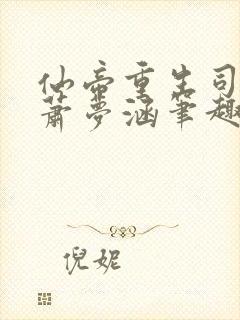 仙帝重生司
萧梦涵笔趣
倪妮